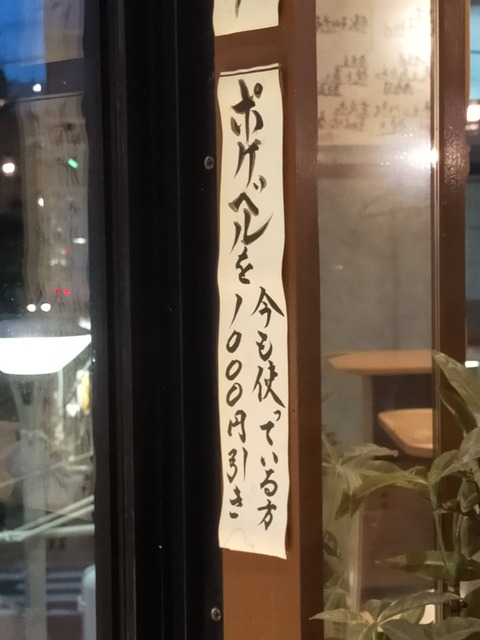 ポケベルを
今も使っている方
1000円引き